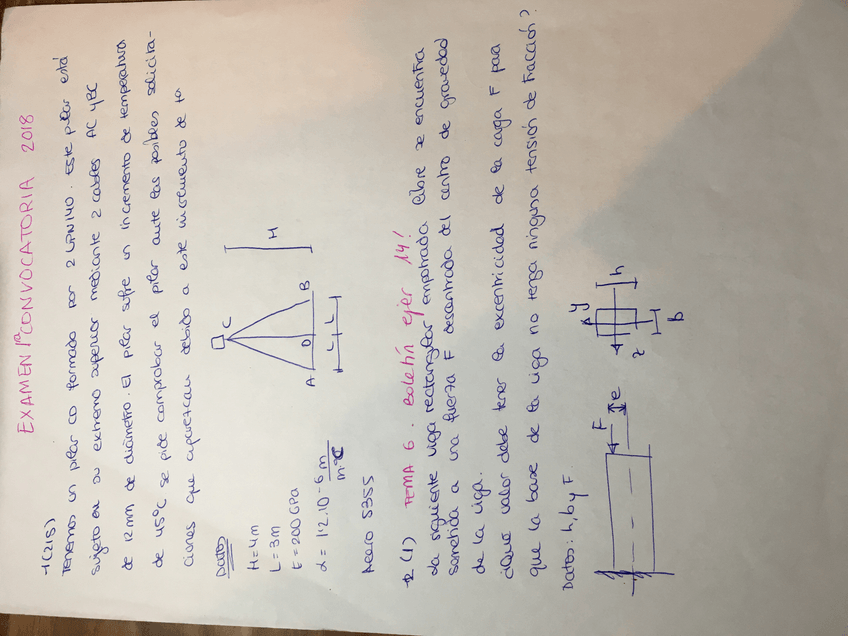 EXAMEN 1ª CONVOCATORIA 2018
-1(2'5)
Tenemos un pilar CD formado por 2 UPN140. Este pilar está
sujeto en su extremo superior mediante 2 cables AC y BC
de 12mm de diámetro. El pilar sufre un incremento de temperatura
de 45ºC se pide comprobar el pilar ante las posibles solicita-
ciones que aparezcan debido a este incremento de tª
Datos
H=4m
L=3m
E=200GPa
α=1'2.10⁻⁶ m/mºC
Acero S355
C
A
D
B
L
L
H
-2 (1) TEMA 6. Boletín ejer 14!
La siguiente viga rectangular empotrada libre se encuentra
sometida a una fuerza F descentrada del centro de gravedad
de la viga.
¿Qué valor debe tener la excentricidad de la carga F para
que la base de la viga no tenga ninguna tensión de tracción?
Datos: h, b y F
F
e
y
z
h
b